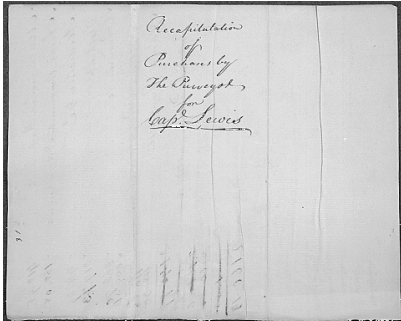 Recapitulation
of
Purchases by
The Purveyor
for
Cap.ᵗ Lewis